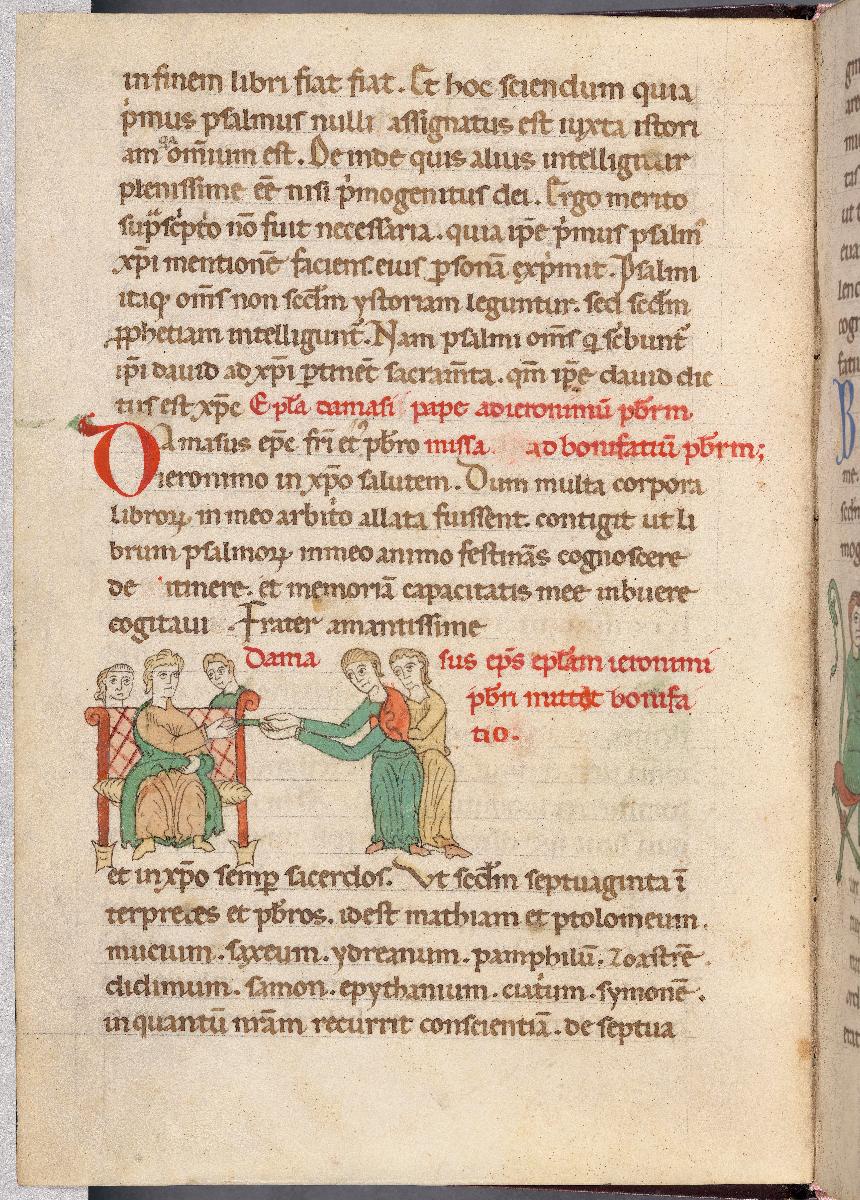 in finem libri fiat fiat. Et hoc sciendum quia
p̓mus psalmus nulli assignatus est iuxta istori
am qa omnium est. De inde quis alius intelligitur
plenissime eē nisi p̓mogenitus dei. Ergo merito
sup̄sc̓ptio nō fuit necessaria. quia ip̄e p̓mus psalm᷒
xp̄i mentionē faciens eius ꝑsonā exp̓mit. Psalmi
itaq; om̄s non sec̄dm ystoriam leguntur. sed sec̄dm
ꝓphetiam intelligunt᷑. Nam psalmi om̄s q̓ sc̓bunt᷑
ip̄i dauid ad xp̄i ꝑtinēt sacram̄ta. qm̄ ip̄e dauid dic
tus est xp̄c Ep̄la damasi pape ad ieronimū pb̄rm
Damasus ep̄c fr̄i et pb̄ro missa ad bonifatiū pb̄rm;
ieronimo in xp̄o salutem. Dum multa corpora
libroꝝ in meo arbit̓o allata fuissent. contigit ut li
brum psalmoꝝ in meo animo festinās cognoscere
de itinere. et memoriā capacitatis mee inbuere
cogitaui. Frater amantissime
Dama sus ep̄s ep̄lam ieronimi
pb̄ri mittit bonifa
tio.
et in xp̄o semꝑ sacerdos. Ut sec̄dm septuaginta ī
terpretes et pb̄ros. id est mathiam et ptolomeum.
mucium. saxeum. ydreanum. pamphilū. zoastrē.
didimum. samon. epythanium. ciatum. symonē.
in quantū nr̄am recurrit conscientiā. de septua